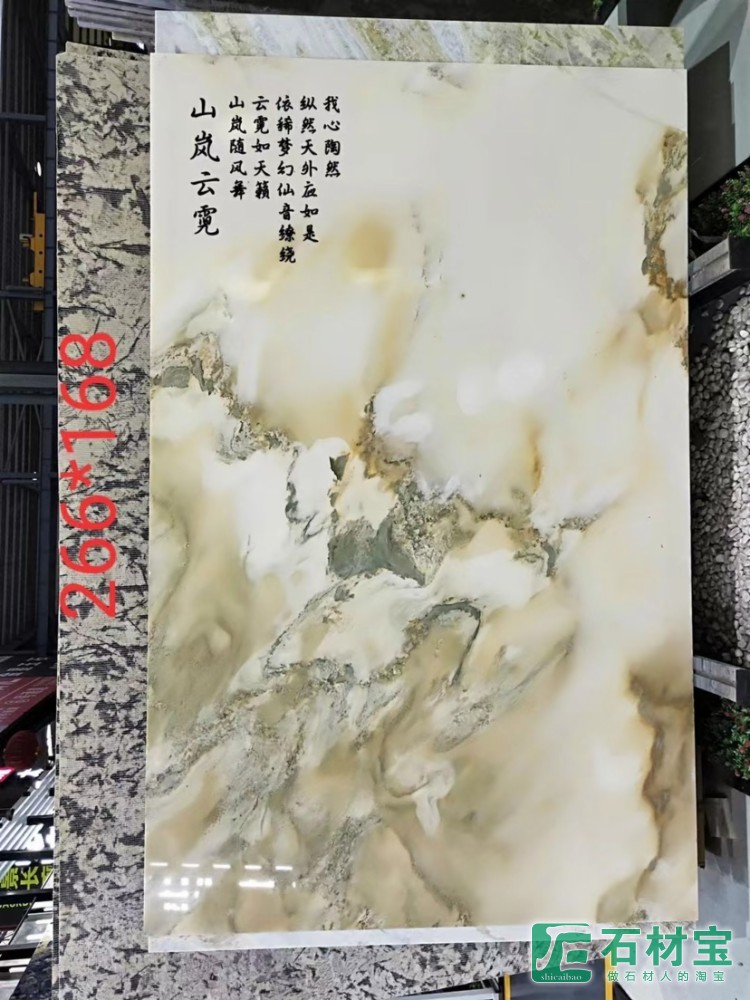 山岚云霓
山岚随风舞
云霓如天籁
依稀梦幻仙音缭绕
纵然天外应如是
我心陶然
266*168
石材宝
shicaibao
做石材人的淘宝